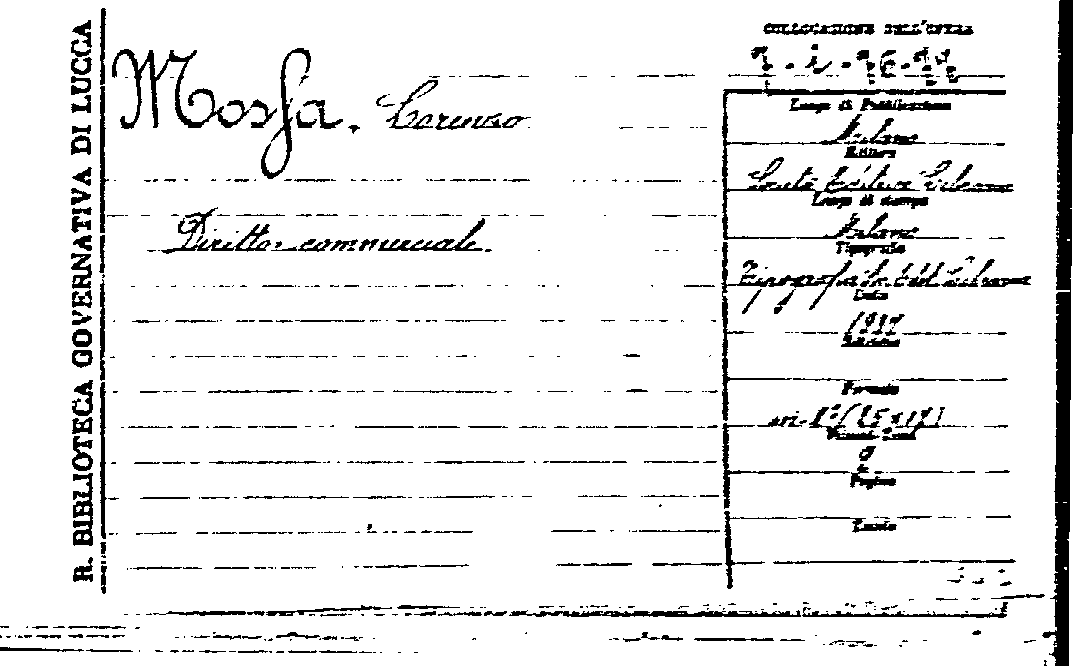 R. BIBLIOTECA GOVERNATIVA DI LUCCA
Mossa. Lorenzo
Diritto commerciale
COLLOCAZIONE DELL'OPERA
Luogo di Pubblicazione
Milano
Editore
Società Editrice Libraria
Luogo di stampa
Milano
Tipografia
Tipografia Soc. Ed. Libraria
Data
1937
Edizione
Formato
in-8° (25x17)
Pagine